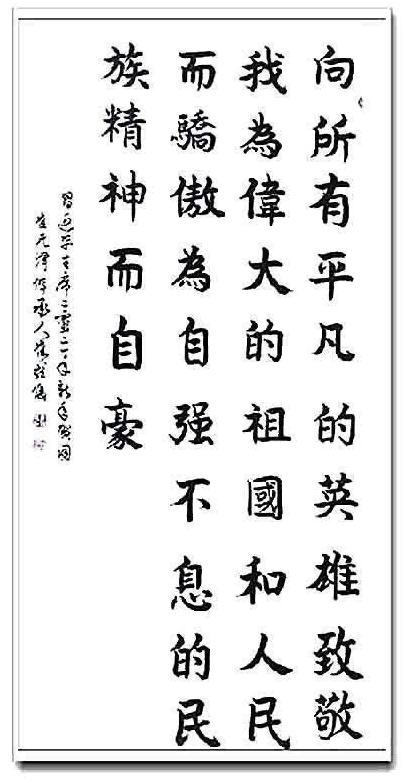 向所有平凡的英雄致敬
我為偉大的祖國和人民
而驕傲為自强不息的民
族精神而自豪
習近平主席二零二一年新年賀詞